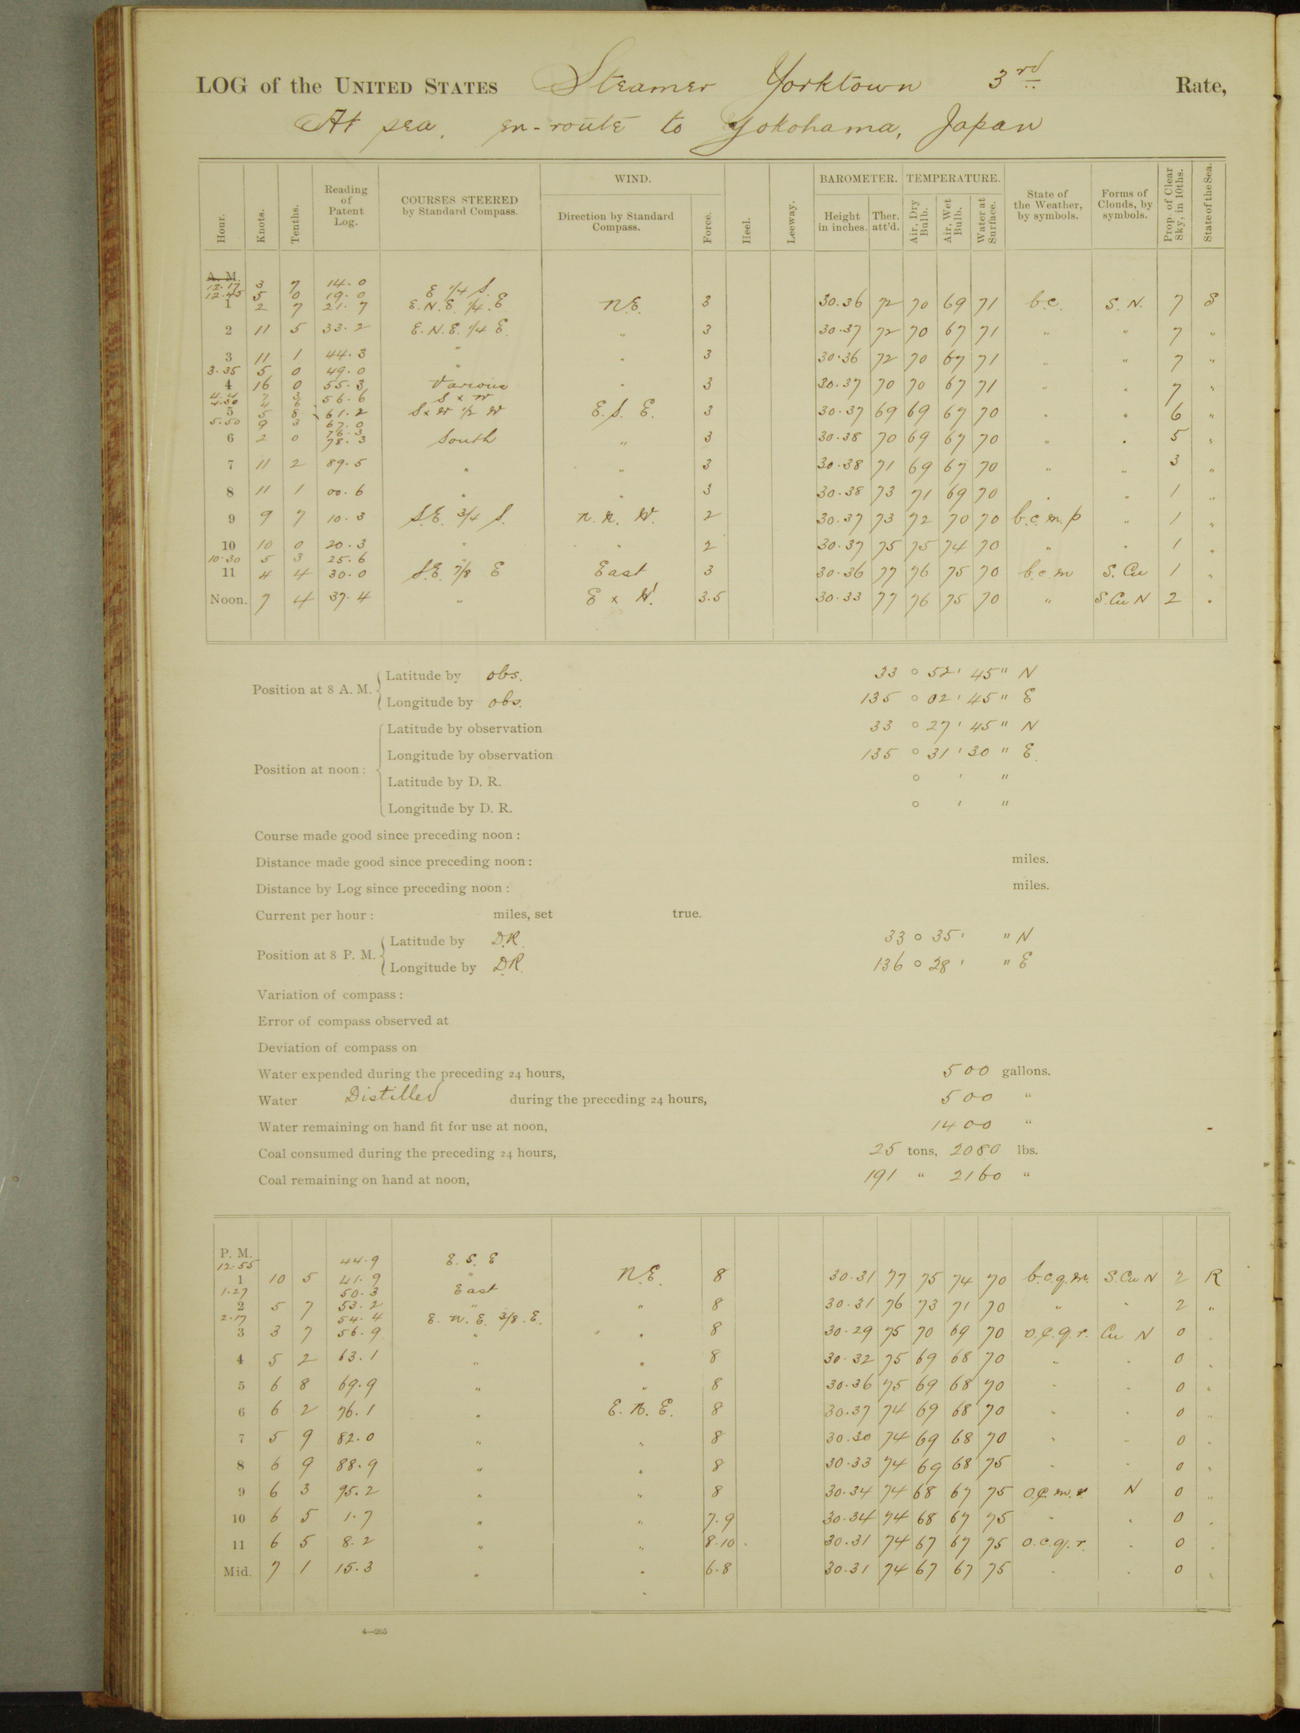 LOG of the UNITED STATES Steamer Yorktown 3rd Rate,
At sea, en-route to Yokohama, Japan
Hour. Knots. Tenths. Reading of Patent Log. COURSES STEERED by Standard Compass. WIND. Direction by Standard Compass. Force. Heel. Leeway. BAROMETER. Height in inches. Ther. att'd. TEMPERATURE. Air, Dry Bulb. Air, Wet Bulb. Water at Surface. State of the Weather, by symbols. Forms of Clouds, by symbols. Prop. of Clear Sky, in 10ths. State of the Sea.
A. M.
12.17 3 7 14.0 E 1/4 S.
12.45 5 0 19.0
1 2 7 21.7 E.N.E. 1/4 E N.E. 3 30.36 72 70 69 71 b.c. S.N. 7 S
2 11 5 33.2 E.N.E. 1/4 E. " 3 30.37 72 70 67 71 " " 7 "
3 11 1 44.3 " " 3 30.36 72 70 67 71 " " 7 "
3.35 5 0 49.0 "
4 16 0 55.3 Various " 3 30.37 70 70 67 71 " " 7 "
56.6 S x W
5 5 8 61.2 S x W 1/2 W E.S.E. 3 30.37 69 69 67 70 " " 6 "
5.50 9 3 67.0
6 2 0 78.3 South " 3 30.38 70 69 67 70 " " 5 "
7 11 2 89.5 " " 3 30.38 71 69 67 70 " " 3 "
8 11 1 00.6 " " 3 30.38 73 71 69 70 " " 1 "
9 9 7 10.3 S.E. 3/4 S. N.N.W. 2 30.37 73 72 70 70 b.c.m.p " 1 "
10 10 0 20.3 " " 2 30.37 75 75 74 70 " " 1 "
10.30 5 3 25.6
11 4 4 30.0 S.E. 7/8 E East 3 30.36 77 76 75 70 b.c.m S.Cu 1 "
Noon. 7 4 37.4 " E x N. 3.5 30.33 77 76 75 70 " S.Cu N 2 "
Position at 8 A. M. Latitude by obs. 33 ° 52 ' 45 " N
Longitude by obs. 135 ° 02 ' 45 " E
Position at noon: Latitude by observation 33 ° 27 ' 45 " N
Longitude by observation 135 ° 31 ' 30 " E.
Latitude by D. R. ° ' "
Longitude by D. R. ° ' "
Course made good since preceding noon:
Distance made good since preceding noon: miles.
Distance by Log since preceding noon: miles.
Current per hour: miles, set true.
Position at 8 P. M. Latitude by D.R. 33 ° 35 ' " N
Longitude by D.R. 136 ° 28 ' " E
Variation of compass:
Error of compass observed at
Deviation of compass on
Water expended during the preceding 24 hours, 500 gallons.
Water Distilled during the preceding 24 hours, 500 "
Water remaining on hand fit for use at noon, 1400 "
Coal consumed during the preceding 24 hours, 25 tons, 2080 lbs.
Coal remaining on hand at noon, 191 " 2160 "
P. M.
12.55 44.9 E.S.E
1 10 5 41.9 " N.E. 8 30.31 77 75 74 70 b.c.q.m. S.Cu N 2 R
1.27 50.3 East
2 5 7 53.2 " " 8 30.31 76 73 71 70 " " 2 "
2.17 54.4 E.N.E. 3/8 E.
3 3 7 56.9 " " 8 30.29 75 70 69 70 o.c.q.r. Cu N 0 "
4 5 2 63.1 " " 8 30.32 75 69 68 70 " " 0 "
5 6 8 69.9 " " 8 30.36 75 69 68 70 " " 0 "
6 6 2 76.1 " E.N.E. 8 30.37 74 69 68 70 " " 0 "
7 5 9 82.0 " " 8 30.30 74 69 68 70 " " 0 "
8 6 9 88.9 " " 8 30.33 74 69 68 75 " " 0 "
9 6 3 95.2 " " 8 30.34 74 68 67 75 o.c.m.r N 0 "
10 6 5 1.7 " " 7.9 30.34 74 68 67 75 " " 0 "
11 6 5 8.2 " " 8.10 30.31 74 67 67 75 o.c.q.r. " 0 "
Mid. 7 1 15.3 " " 6.8 30.31 74 67 67 75 " " 0 "